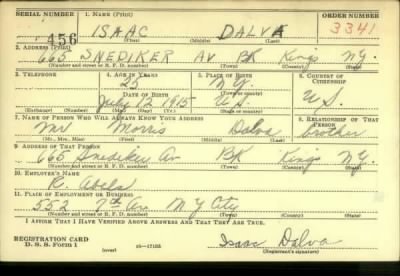 SERIAL NUMBER 1. NAME (Print) ORDER NUMBER
456 ISAAC DALVA 3341
(First) (Middle) (Last)
2. ADDRESS (Print)
665 SNEDIKER AV BK Kings N.Y.
(Number and street or R. F. D. number) (Town) (County) (State)
3. TELEPHONE 4. AGE IN YEARS 5. PLACE OF BIRTH 6. COUNTRY OF CITIZENSHIP
25 N.Y.
DATE OF BIRTH (Town or county)
July 12 1915 U.S. U.S.
(Exchange) (Number) (Mo.) (Day) (Yr.) (State or country)
7. NAME OF PERSON WHO WILL ALWAYS KNOW YOUR ADDRESS 8. RELATIONSHIP OF THAT PERSON
Mr. Morris Dalva brother
(Mr., Mrs., Miss) (First) (Middle) (Last)
9. ADDRESS OF THAT PERSON
665 Snediker Av BK Kings N.Y.
(Number and street or R. F. D. number) (Town) (County) (State)
10. EMPLOYER'S NAME
R.
11. PLACE OF EMPLOYMENT OR BUSINESS
552 7th Av N Y City
(Number and street or R. F. D. number) (Town) (County) (State)
I AFFIRM THAT I HAVE VERIFIED ABOVE ANSWERS AND THAT THEY ARE TRUE.
REGISTRATION CARD
D. S. S. Form 1 (over) Isaac Dalva
(Registrant's signature)